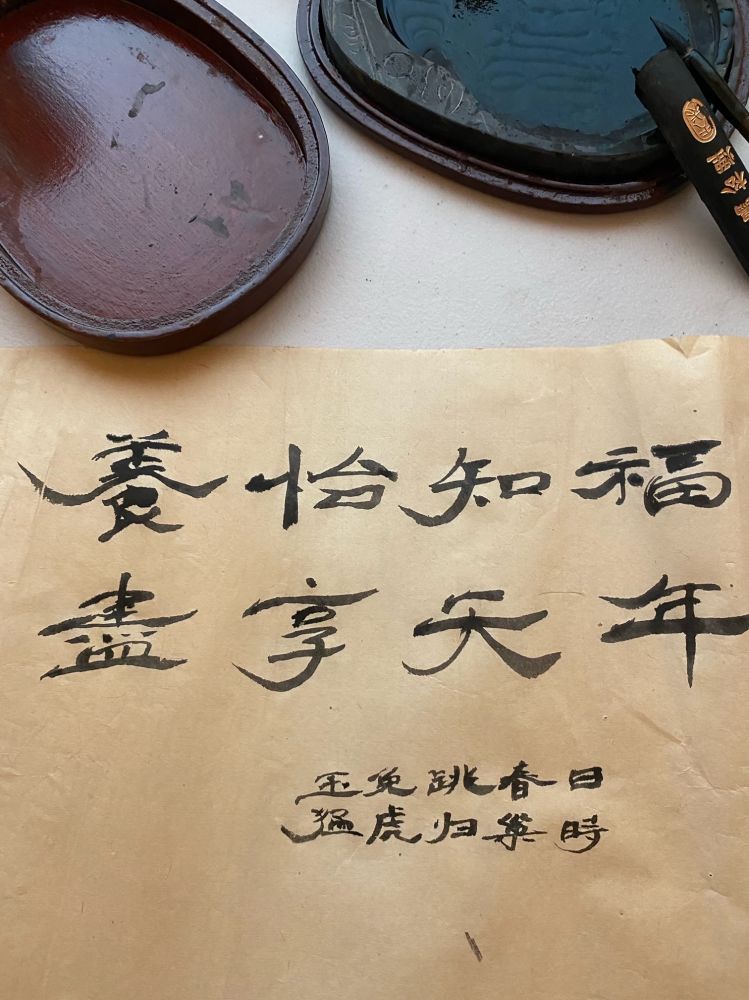 養怡知福
盡享天年
玉兔跳春日
猛虎归巢時